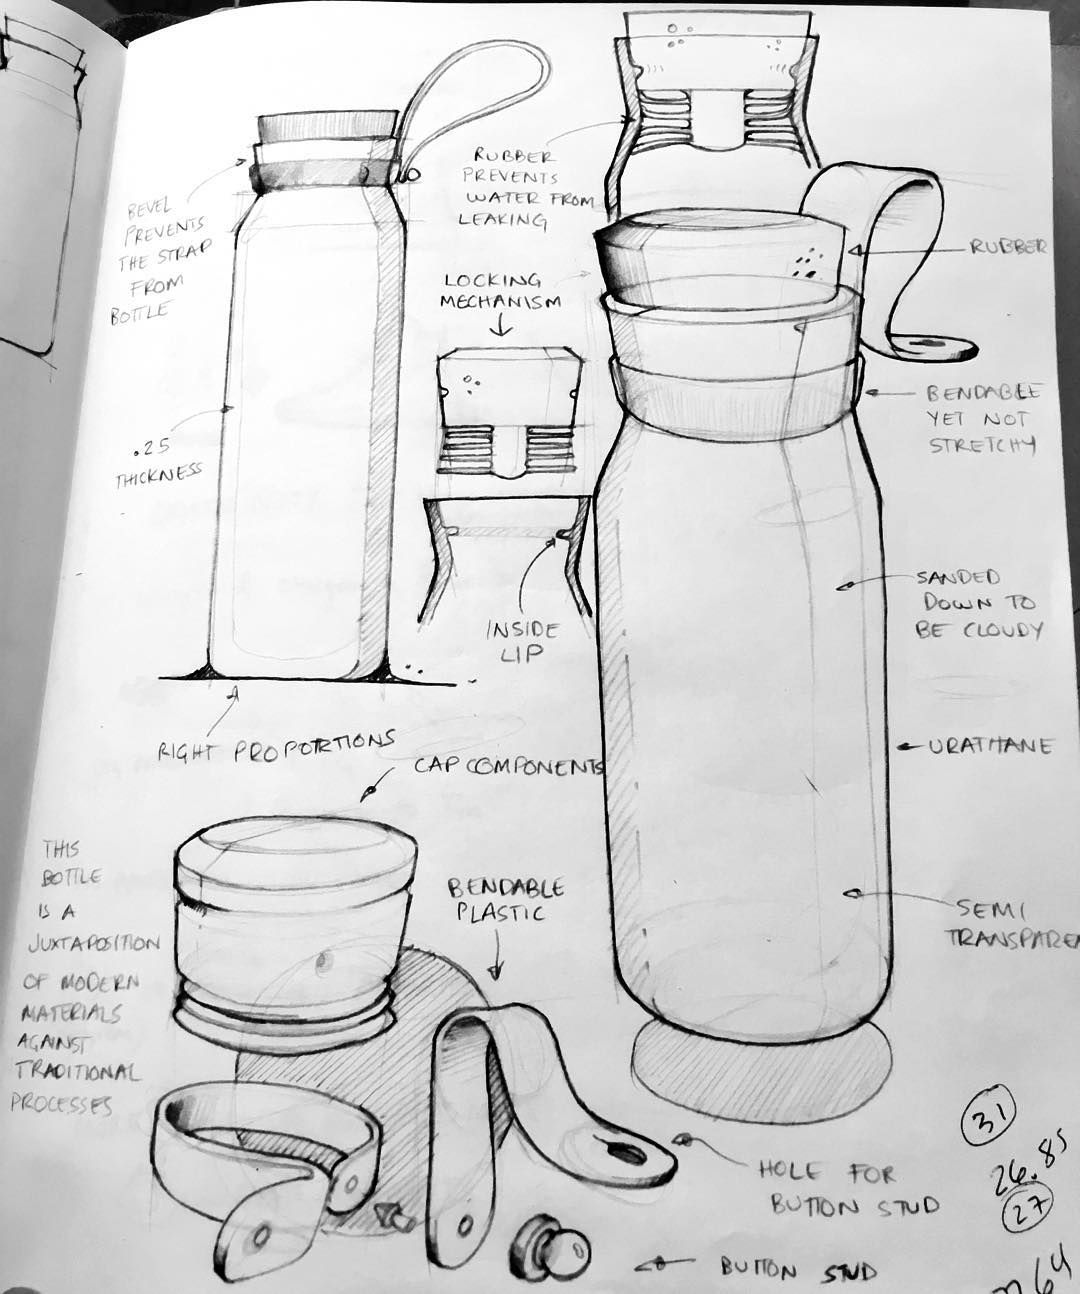 BEVEL
PREVENTS
THE STRAP
FROM
BOTTLE
RUBBER
PREVENTS
WATER FROM
LEAKING
LOCKING
MECHANISM
RUBBER
BENDABLE
YET NOT
STRETCHY
.25
THICKNESS
INSIDE
LIP
SANDED
DOWN TO
BE CLOUDY
RIGHT PROPORTIONS
CAP COMPONENTS
URATHANE
THIS
BOTTLE
IS A
JUXTAPOSITION
OF MODERN
MATERIALS
AGAINST
TRADITIONAL
PROCESSES
BENDABLE
PLASTIC
SEMI
TRANSPARE
HOLE FOR
BUTTON STUD
BUTTON STUD
31
26.85
27